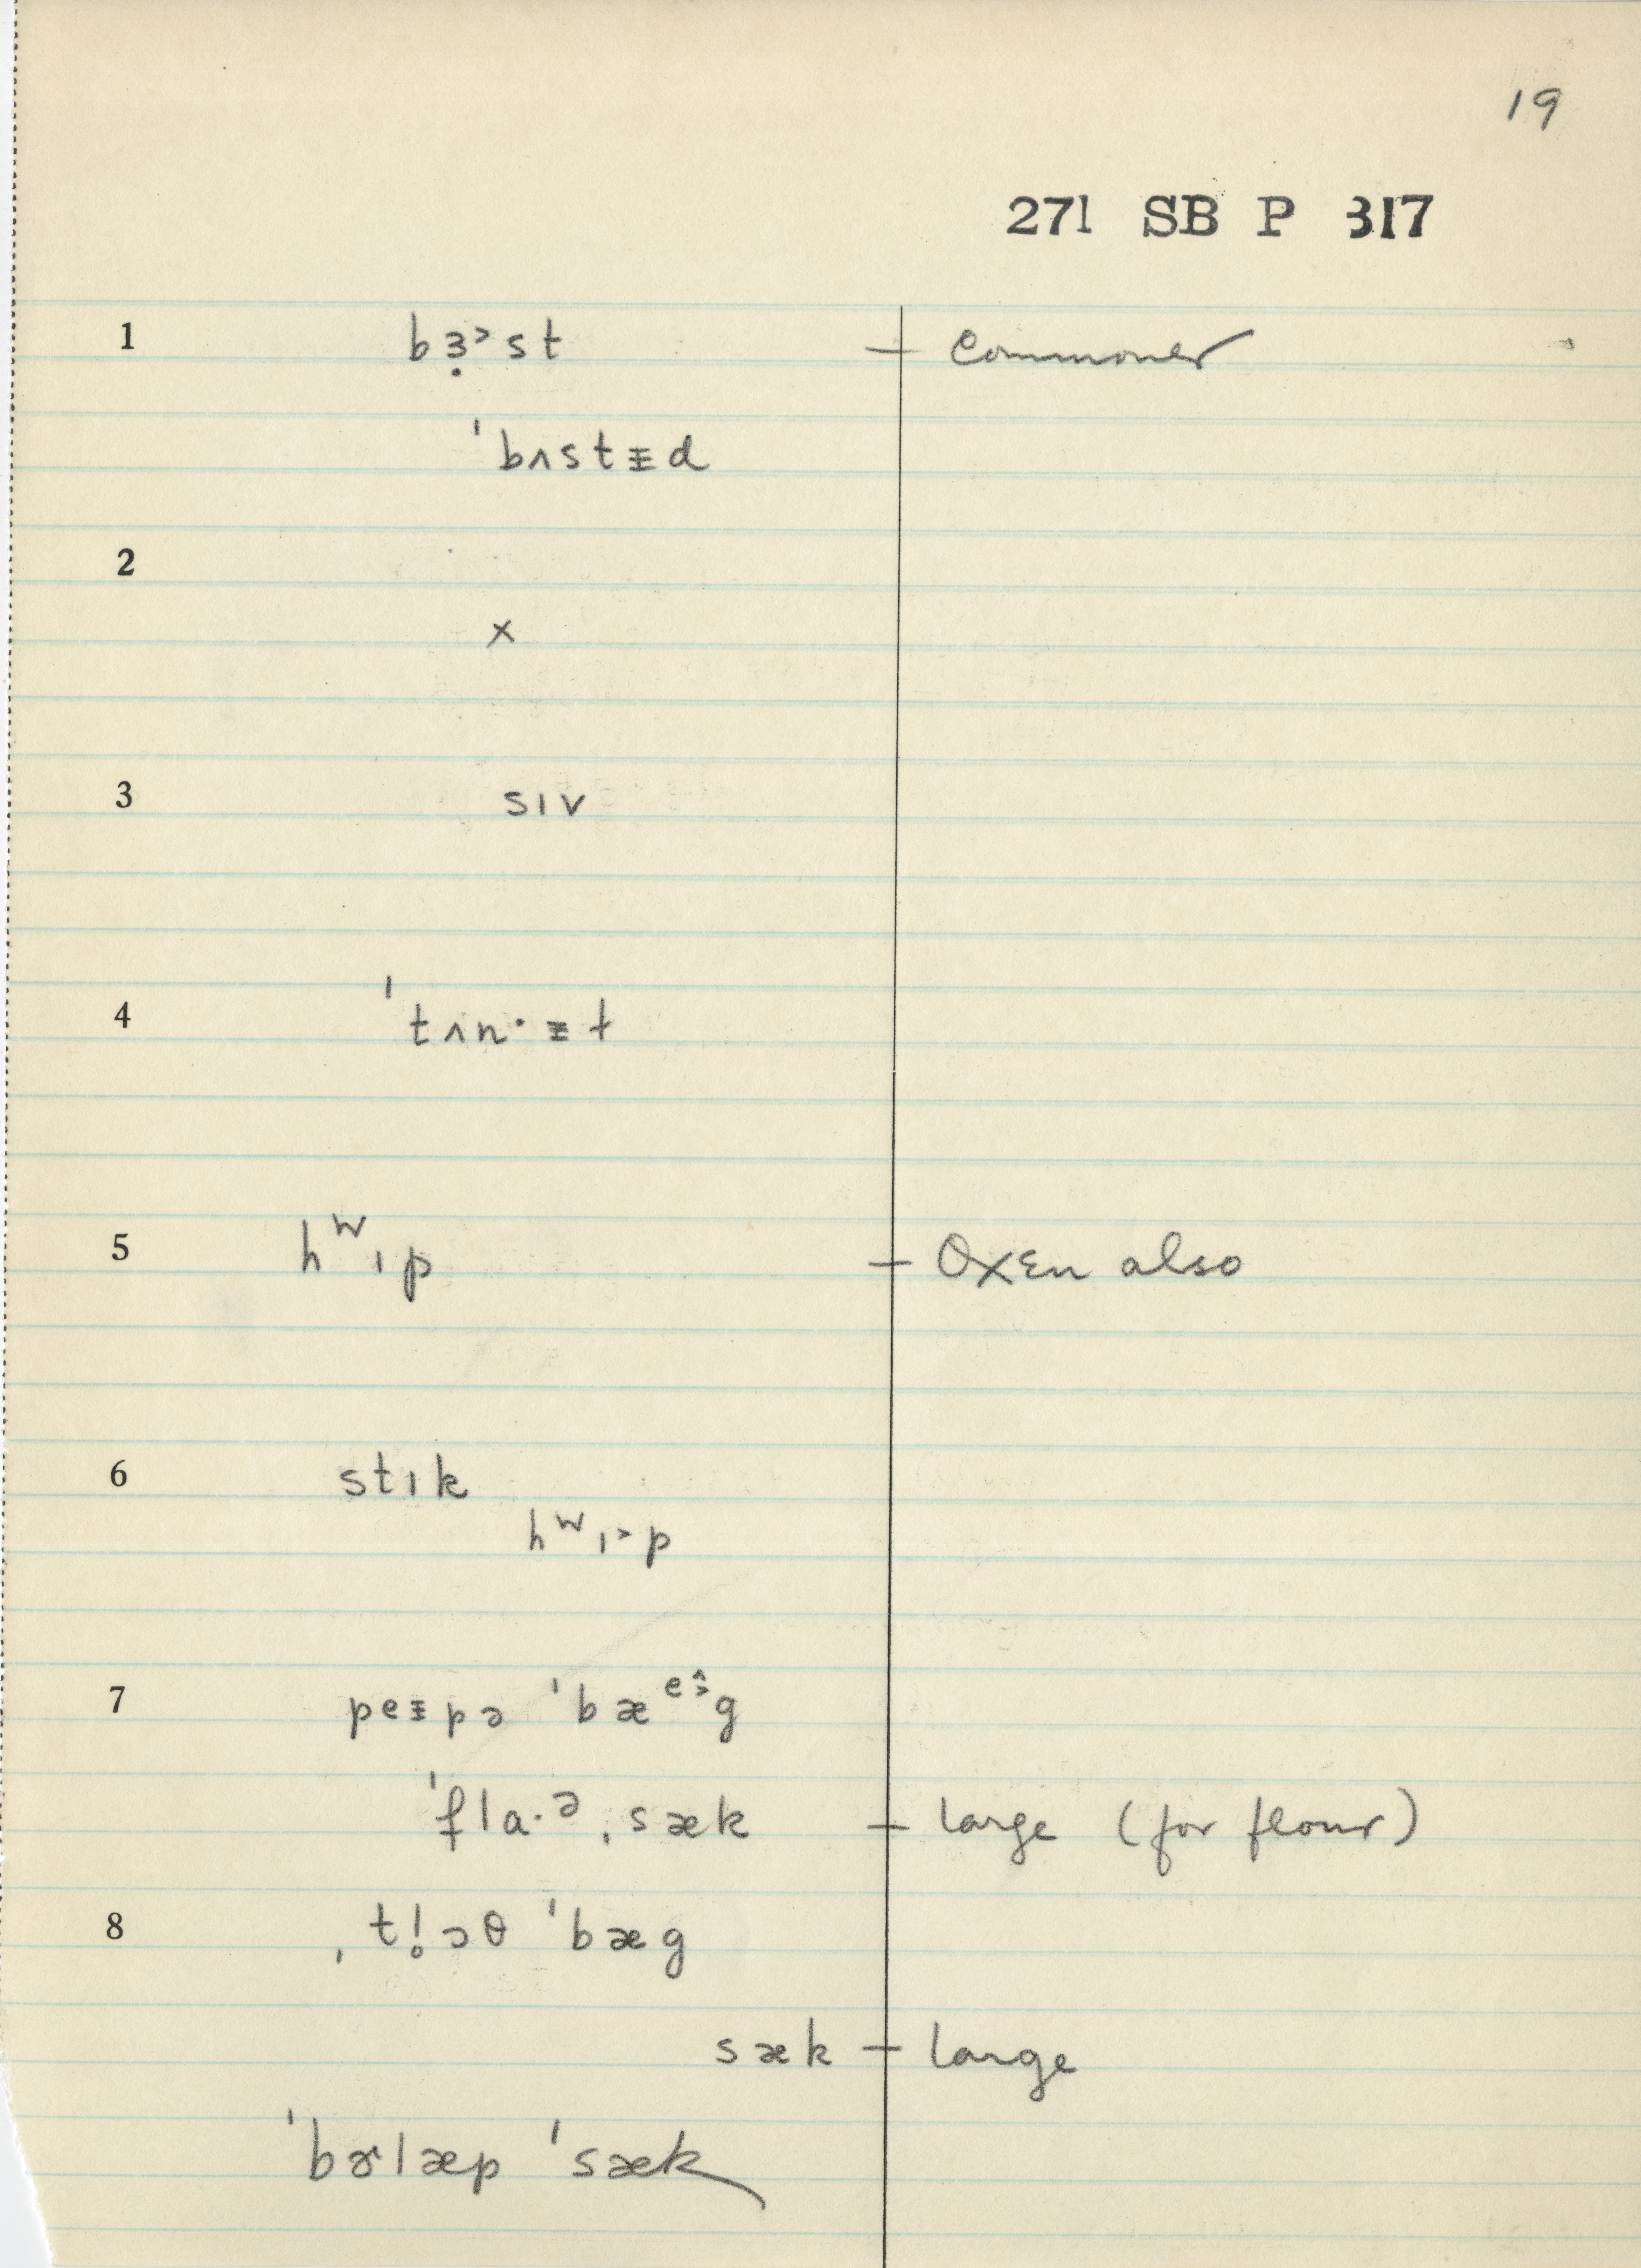 19
271 SB P 317
1 bɜ̣˃st — commoner
ˈbʌstᵻd
2
×
3 sɪv
4 ˈtʌn·ᵻɫ
5 hʷɪp — Oxen also
6 stɪk
hʷɪ˃p
7 peᵻpə ˈbæᵉ̂˃g
ˈflɑ·ə ˌsæk — large (for flour)
8 ˌtl̥ɔθ ˈbæg
sæk — large
ˈbɚlæp ˈsæk